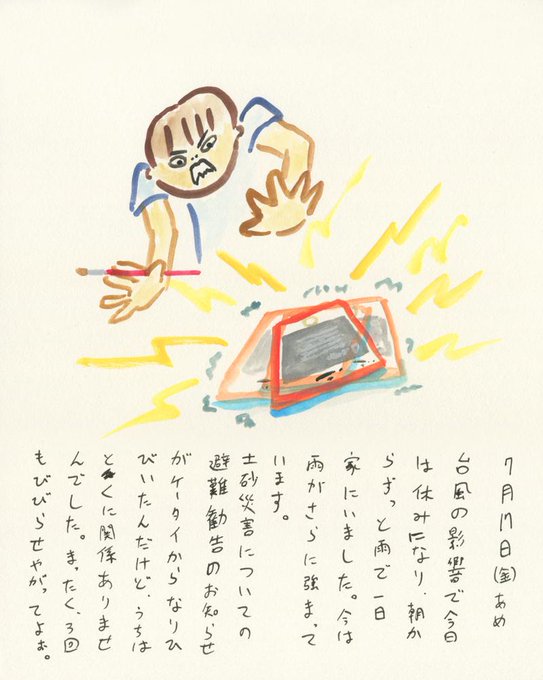 7月17日(金)あめ
台風の影響で今日
は休みになり、朝か
らずっと雨で一日
家にいました。今は
雨がさらに強まって
います。
土砂災害についての
避難勧告のお知らせ
がケータイからなりひ
びいたんだけど、うちは
とくに関係ありませ
んでした。まったく、3回
もびびらせやがってよぉ。